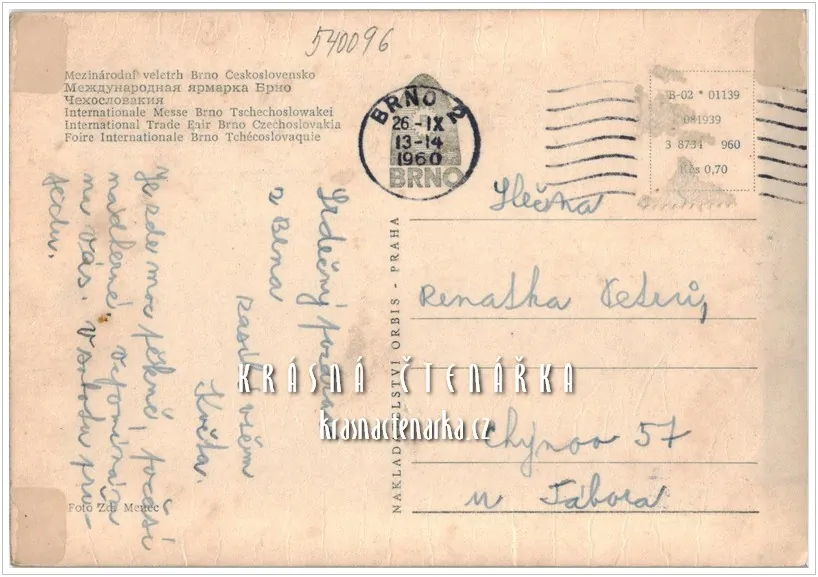 540096
Mezinárodní veletrh Brno Československo
Международная ярмарка Брно
Чехословакия
Internationale Messe Brno Tschechoslowakei
International Trade Fair Brno Czechoslovakia
Foire Internationale Brno Tchécoslovaquie
BRNO 2
26.-IX
13-14
1960
BRNO
B-02 * 01139
081939
3 8734 960
Kčs 0,70
Srdečný
z Brna
všem
Květa.
Je zde moc pěkně, počasí
nádherné, vzpomínám
na vás. V sobotu při-
jedu.
NAKLADATELSTVÍ ORBIS - PRAHA
Slečna
Renatka
Chýnov 57
u Tábora
KRÁSNÁ ČTENÁŘKA
krasnactenarka.cz
Foto Zd. Menec